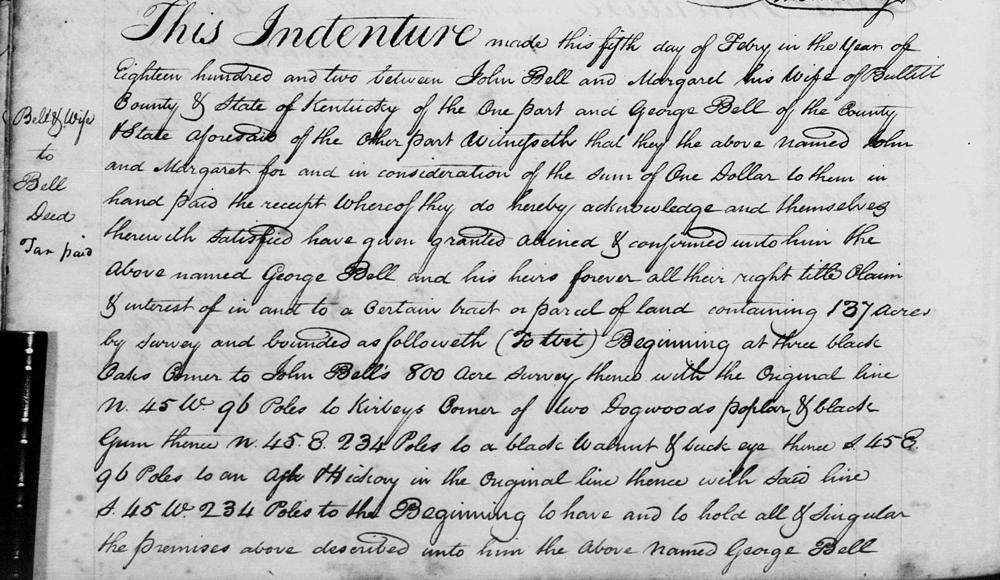 This Indenture made this fifth day of Febry in the Year of
Eighteen hundred and two between John Bell and Margaret his Wife of Bullitt
County & State of Kentucky of the One part and George Bell of the County
& State aforesaid of the Other part Witnesseth that they the above named John
and Margaret for and in consideration of the sum of One Dollar to them in
hand paid the receipt Whereof they do hereby acknowledge and themselves
therewith satisfied have given granted aliened & confirmed unto him the
Above named George Bell and his heirs forever all their right title Claim
& interest of in and to a Certain tract or parcel of land containing 137 Acres
by survey and bounded as followeth (To Wit) Beginning at three black
Oaks Corner to John Bell's 800 Acre survey thence with the Original line
N. 45 W. 96 Poles to Kirbeys Corner of two Dogwoods poplar & black
Gum thence N. 45. E. 234 Poles to a black Walnut & buck eye thence S. 45 E.
96 Poles to an Ash & Hickory in the Original line thence with said line
S. 45 W. 234 Poles to the Beginning to have and to hold all & singular
the premises above described unto him the Above named George Bell
Bell & Wife
to
Bell
Deed
Tax paid